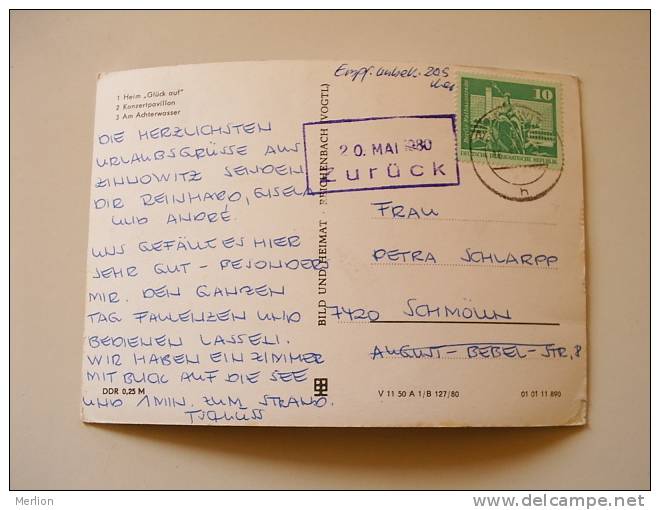 1 Heim „Glück auf"
2 Konzertpavillon
3 Am Achterwasser
DIE HERZLICHSTEN
URLAUBSGRÜSSE AUS
ZINNOWITZ SENDEN
DIR REINHARD, GISELA
UND ANDRÉ.
UNS GEFÄLLT ES HIER
SEHR GUT – BESONDERS
MIR. DEN GANZEN
TAG FAULENZEN UND
BEDIENEN LASSEN.
WIR HABEN EIN ZIMMER
MIT BLICK AUF DIE SEE
UND 1 MIN. ZUM STRAND.
TSCHÜSS
DDR 0,25 M
BILD UND HEIMAT · REICHENBACH (VOGTL)
Empf. unbek. 20.5
10
DEUTSCHE DEMOKRATISCHE REPUBLIK
20. MAI 1980
Zurück
h
FRAU
PETRA SCHLARPP
7420 SCHMÖLLN
AUGUST-BEBEL-STR. 8
V 11 50 A 1/B 127/80
01 01 11 890
Merlion
http://www.delcampe.net